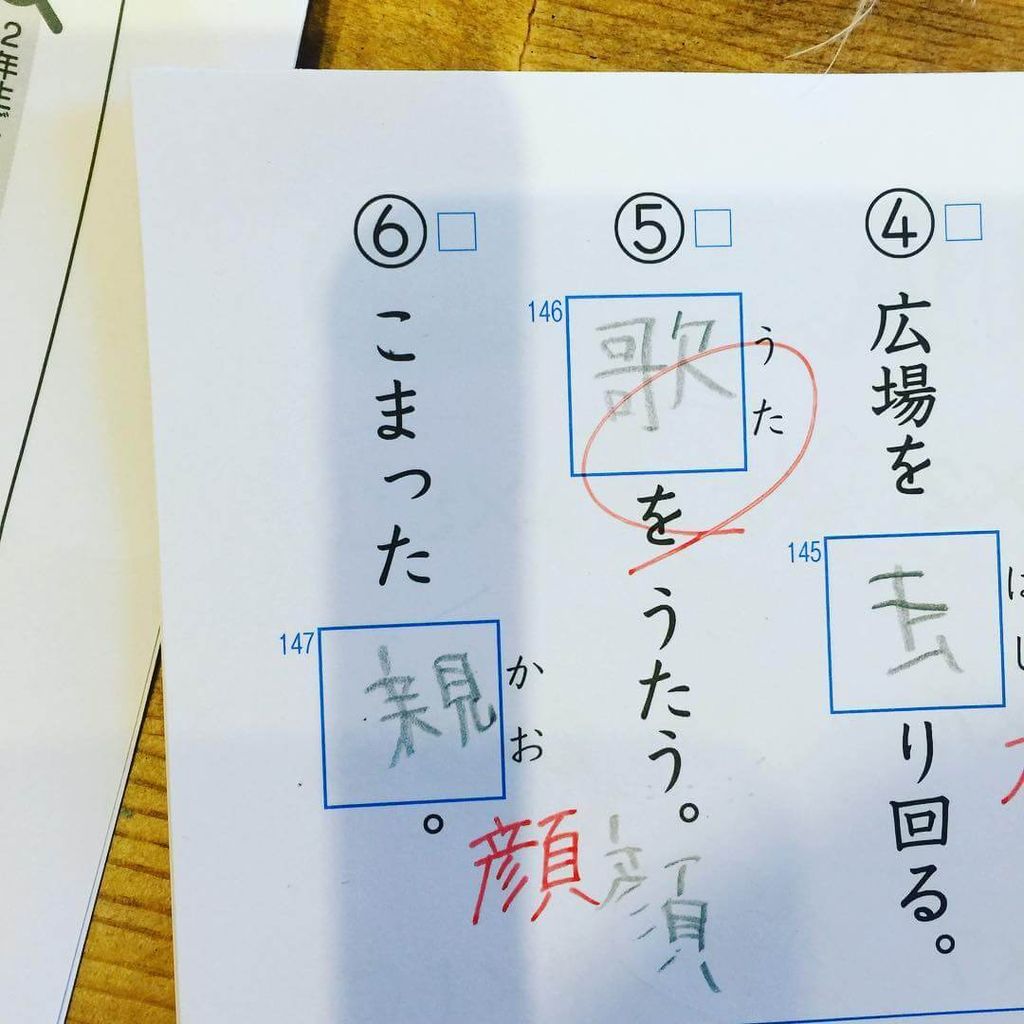 ④
広場を
145
去
は
し
り回る。
⑤
146
歌
うた
をうたう。
⑥
こまった
147
親
かお
。
顔
顔
2年